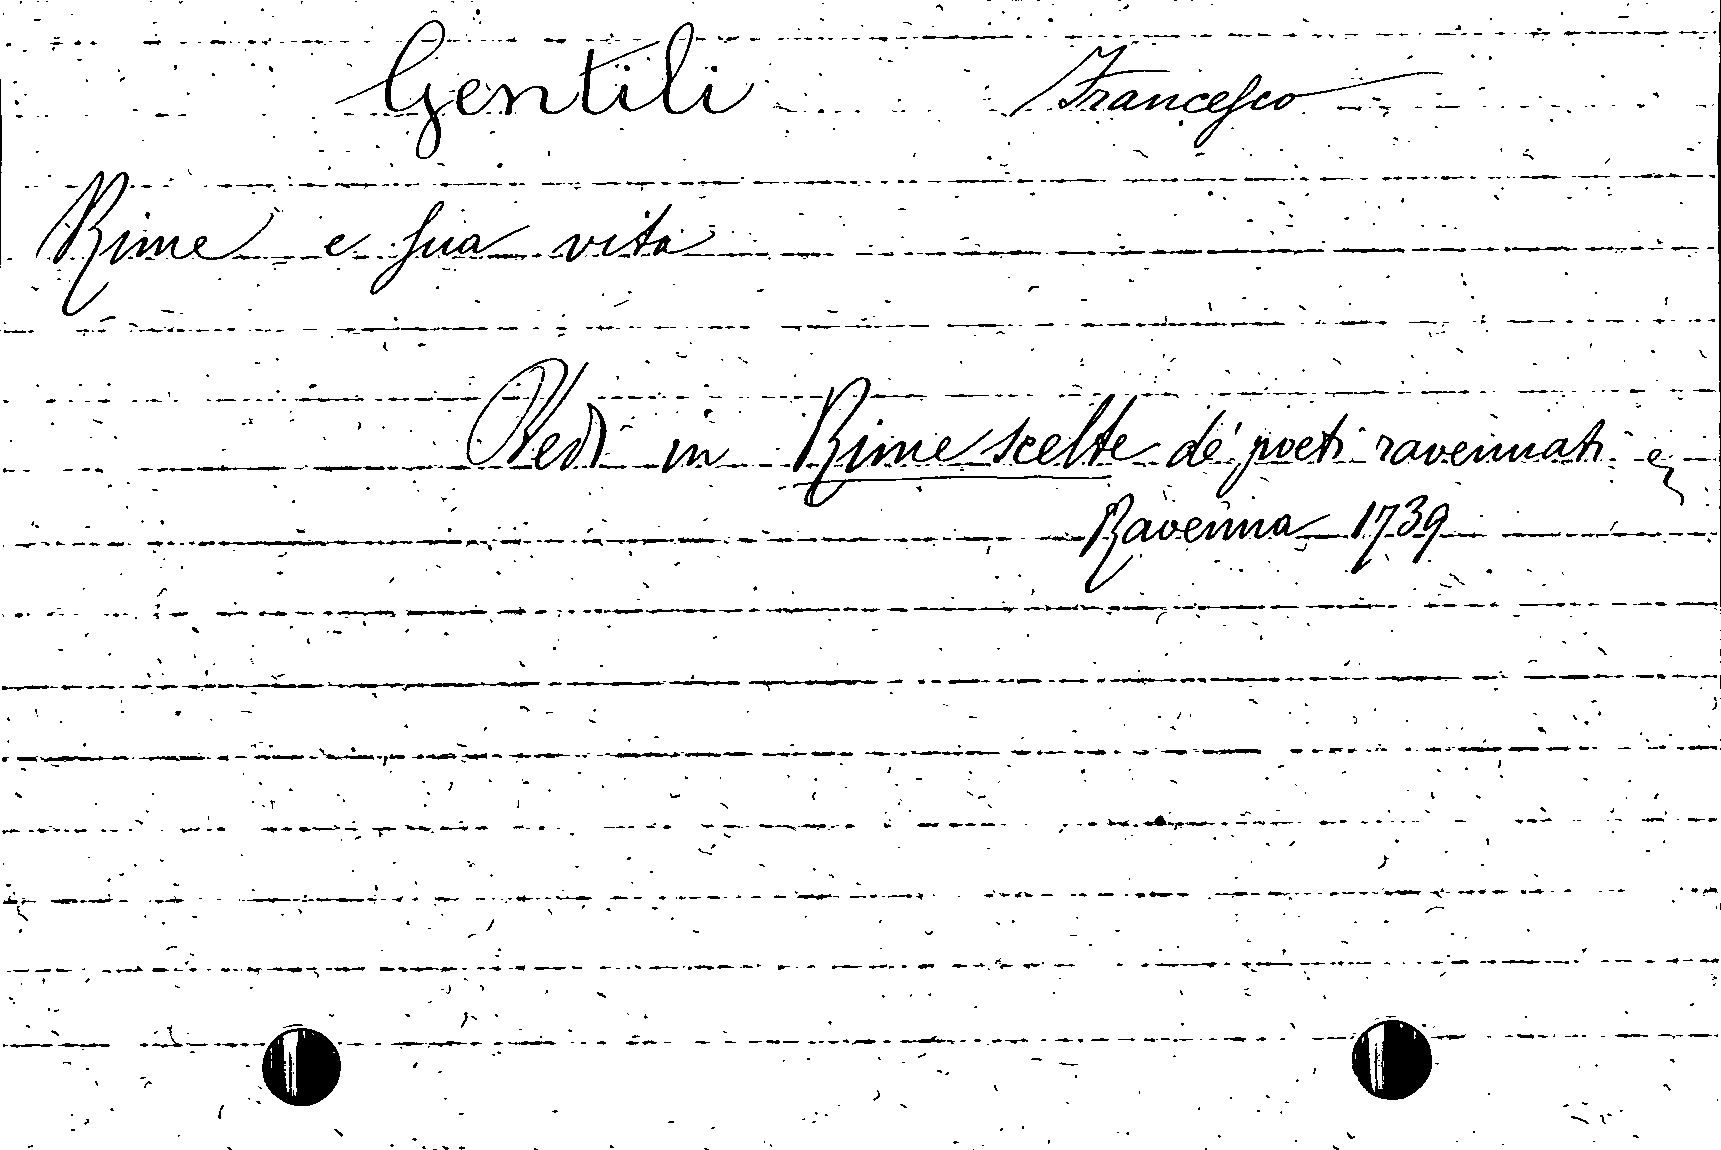 Gentili Francesco
Rime e sua vita
Vedi in Rime scelte de' poeti ravennati
Ravenna 1739